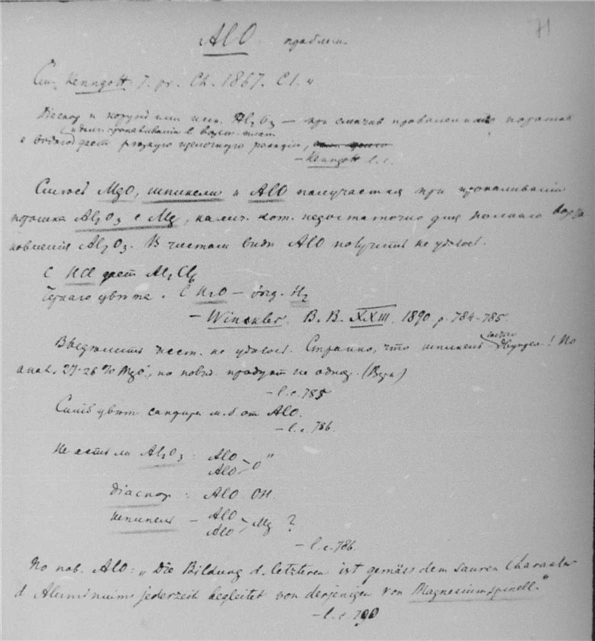 71
AlO
См. Kenngott J. pr. Ch. 1867. CI.
Диаспор и корунд или иск. Al₂O₃ — при смачив. прокаленнаго порошка
с водой дает рѣзкую щелочную реакцію,
— Kenngott l. c.
Смѣсь MgO, шпинели и AlO получается при прокаливаніи
порошка Al₂O₃ с Mg, недостаточно для полнаго возста
новленія Al₂O₃. В чистом видѣ AlO получить не удалось.
С HCl дает Al₂Cl₆
Чернаго цвѣта. С H₂O — выд. H₂
— Winckler. B. B. XXIII. 1890 p. 784-785
не удалось. Странно, что шпинель ! По
анал. 27-26% MgO, но повид. продукт не однор.
— l. c. 785
Синій цвѣт сапфира м. б. от AlO.
— l. c. 786.
Не есть ли Al₂O₃ : AlO
AlO > O"
діаспор : AlO OH.
шпинель — AlO
AlO > Mg ?
— l. c. 786.
По пов. AlO: „Die Bildung d. letzteren ist gemäss dem sauren Charakter
d Aluminiums jederzeit begleitet von derjenigen von Magnesiumspinell."
— l. c.